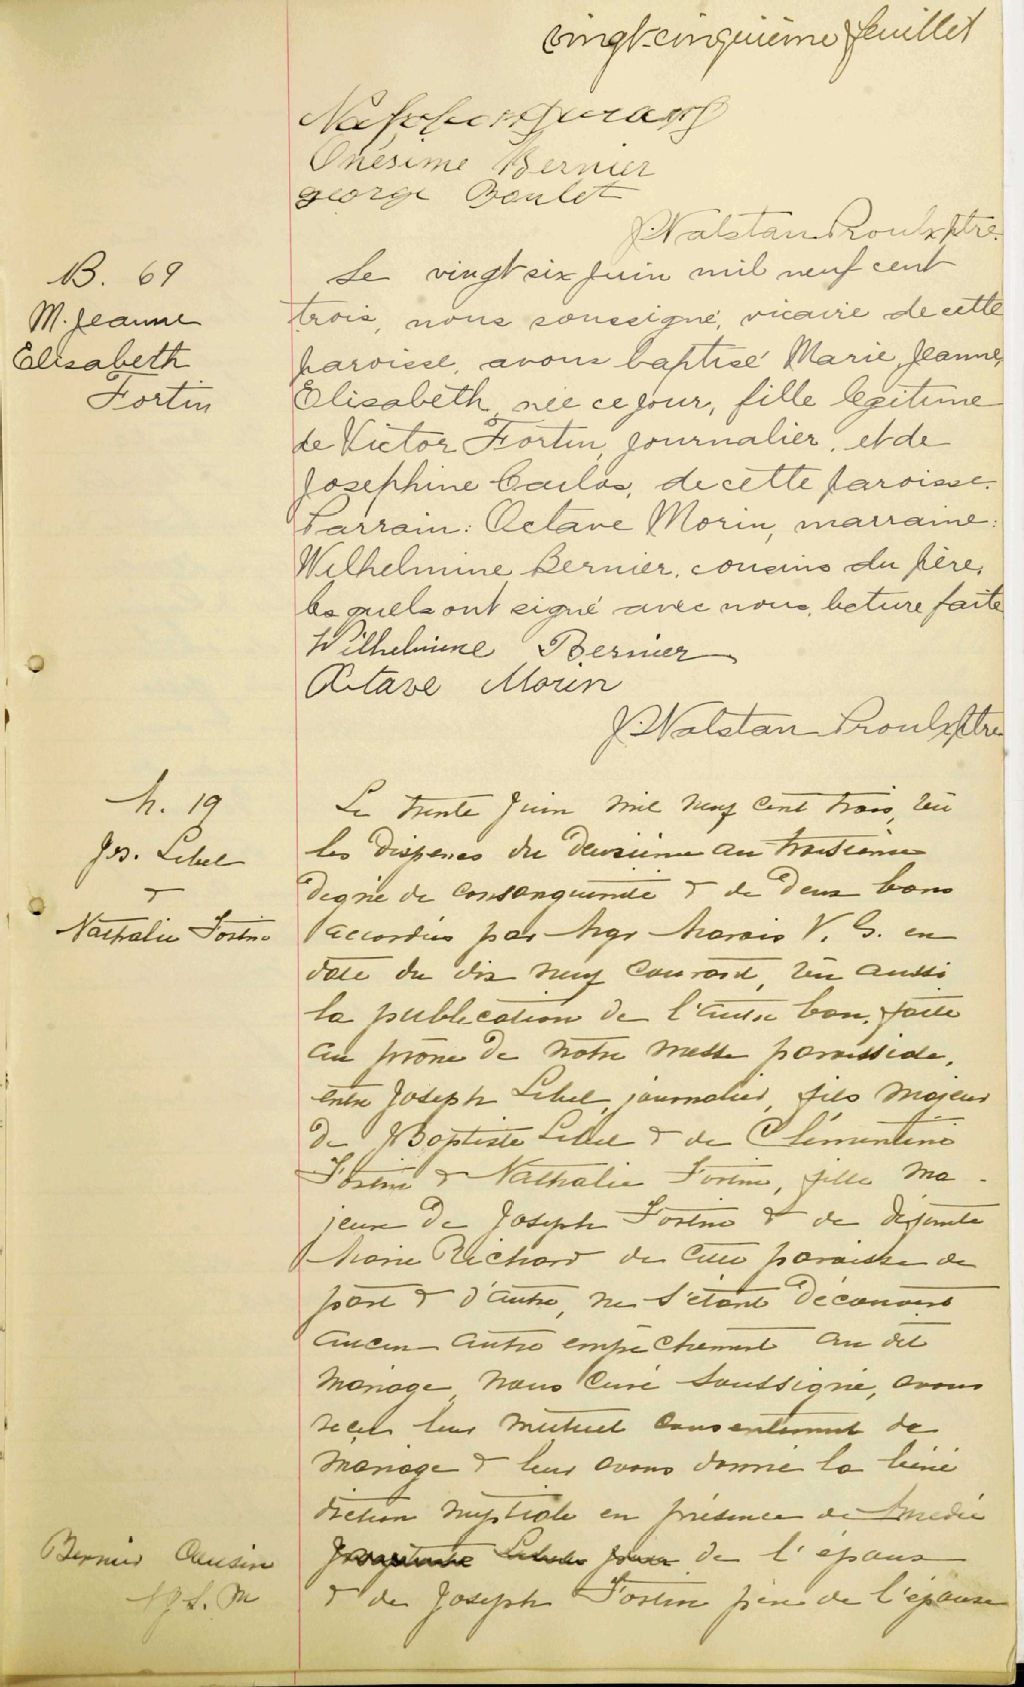 vingt-cinquième feuillet
Napoléon Durand
Onésime Bernier
george Boulet
J. Valstan Proulx, ptre.
B. 69
M. Jeanne
Elisabeth
Fortin
Le vingt six juin mil neuf cent
trois, nous soussigné, vicaire de cette
paroisse, avons baptisé Marie, Jeanne,
Elisabeth, née ce jour, fille légitime
de Victor Fortin, journalier, et de
Josephine Carlos, de cette paroisse.
Parrain: Octave Morin, marraine:
Wilhelmine Bernier, cousins du père,
lesquels ont signé avec nous, lecture faite
Wilhelmine Bernier
Octave Morin
J. Valstan Proulx, ptre
M. 19
Jos. Lebel
&
Nathalie Fortin
Le trente Juin mil neuf cent trois, vu
les dispenses du deuxième au troisième
degré de consanguinité & de deux bans
accordées par Mgr Marois V. G. en
date du dix neuf courant, vu aussi
la publication de l'autre ban, faite
au prône de notre messe paroissiale,
entre Joseph Lebel, journalier, fils majeur
de JBaptiste Lebel & de Clémentine
Fortin & Nathalie Fortin, fille ma-
jeure de Joseph Fortin & de défunte
Marie Richard de cette paroisse de
part & d'autre, ne s'étant découvert
aucun autre empêchement au dit
mariage, nous Curé soussigné, avons
reçu leur mutuel consentement de
mariage & leur avons donné la béné
diction nuptiale en présence de Amédée
Lebel père de l'époux
& de Joseph Fortin père de l'épouse
Bernier Cousin